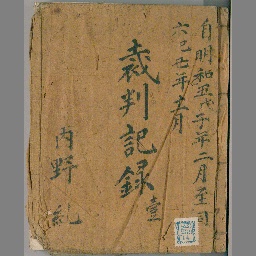 自明和五戊子年二月至同
六己丑年十二月
裁判記録 壹
内野 乱